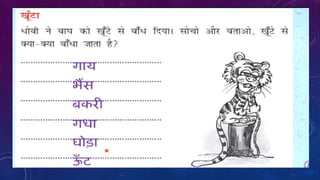 खूँटा
धोबी ने बाघ को खूँटे से बाँध दिया। सोचो और बताओ, खूँटे से
क्या-क्या बाँधा जाता है?
गाय
भैंस
बकरी
गधा
घोड़ा
ऊँट